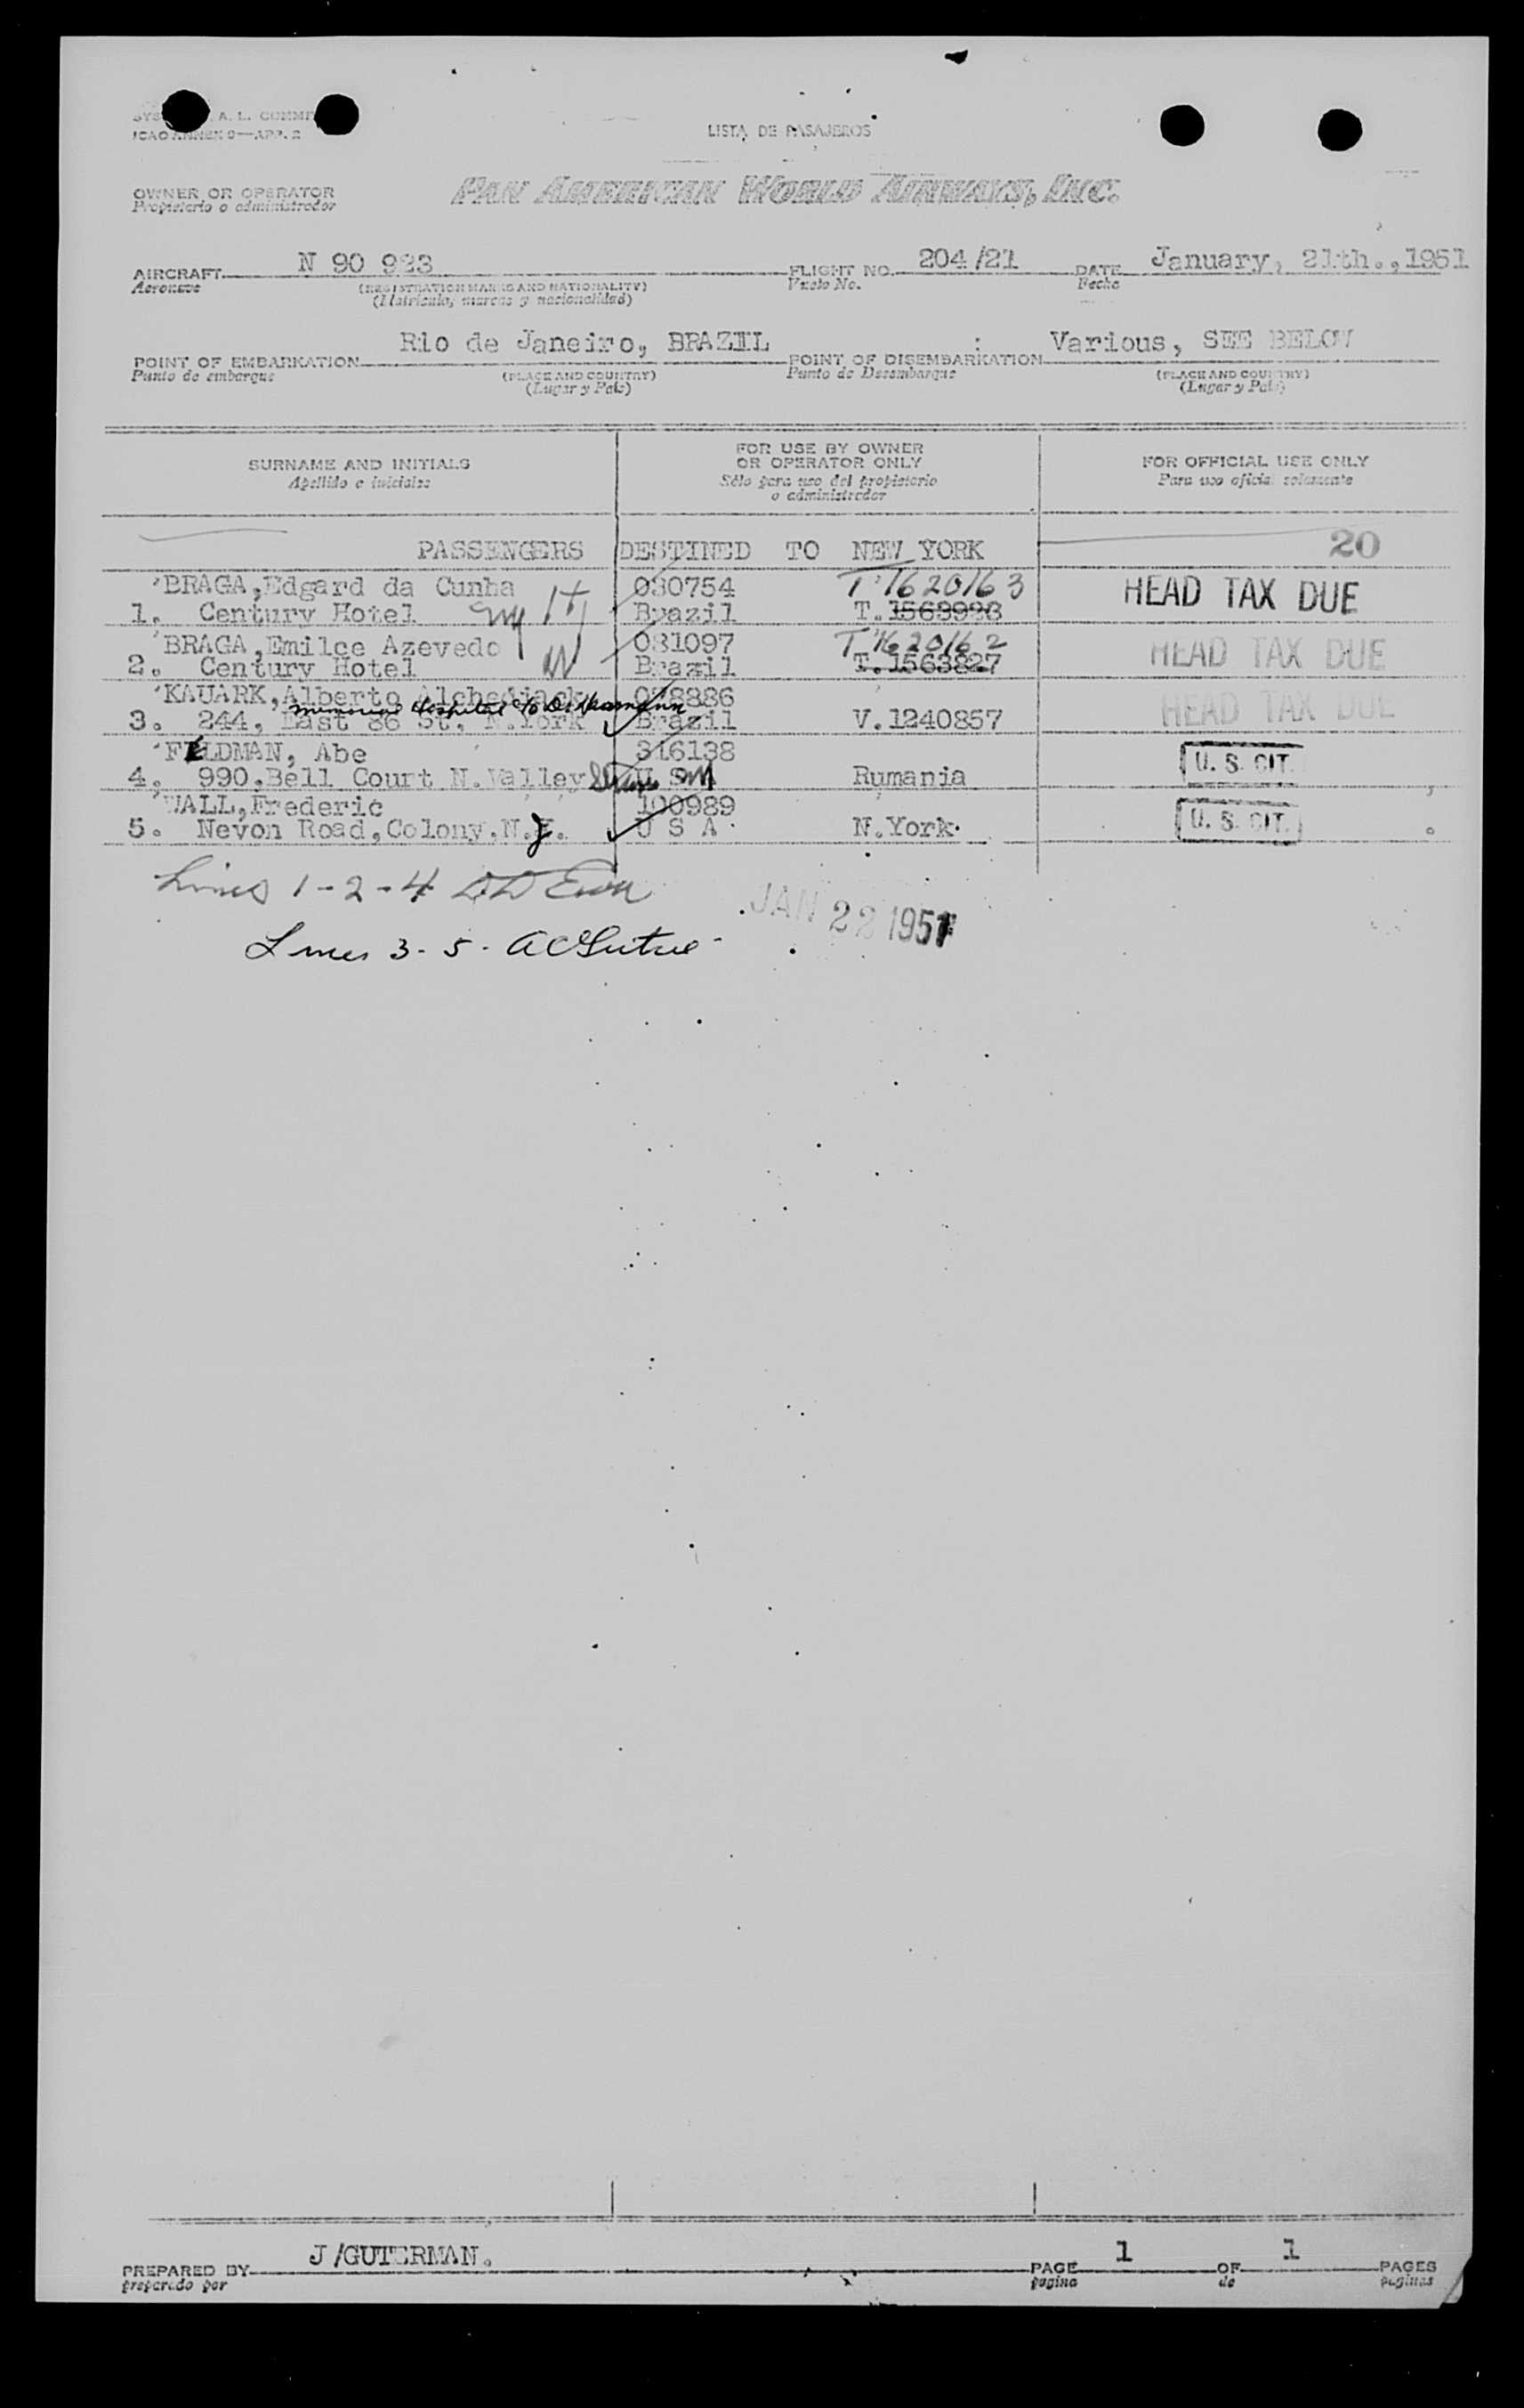 A. L. COMMI
ICAO ANNEX 9—APP. 2
LISTA DE PASAJEROS
OWNER OR OPERATOR
Propietario o administrador
PAN AMERICAN WORLD AIRWAYS, INC.
AIRCRAFT N 90 923 FLIGHT NO. 204/21 DATE January, 21th.,1951
Aeronave (REGISTRATION MARKS AND NATIONALITY) Vuelo No. Fecha
(Matricula, marcas y nacionalidad)
POINT OF EMBARKATION Rio de Janeiro, BRAZIL POINT OF DISEMBARKATION Various, SEE BELOW
Punto de embarque (PLACE AND COUNTRY) Punto de Desembarque (PLACE AND COUNTRY)
(Lugar y Pais) (Lugar y Pais)
SURNAME AND INITIALS
Apellido e iniciales
FOR USE BY OWNER
OR OPERATOR ONLY
Sólo para uso del propietario
o administrador
FOR OFFICIAL USE ONLY
Para uso oficial solamente
PASSENGERS DESTINED TO NEW YORK 20
BRAGA,Edgard da Cunha 030754 T1620163 HEAD TAX DUE
1. Century Hotel Brazil
BRAGA,Emilce Azevedo 031097 T1620162 HEAD TAX DUE
2. Century Hotel Brazil T.1563827
KAUARK,Alberto HEAD TAX DUE
Hospital c/o Dr.
3. 244, East 86 St, N.York Brazil V.1240857
FELDMAN, Abe 316138 U. S. CIT.
4. 990,Bell Court N.Valley U S A Rumania
WALL,Frederic 100989 U. S. CIT.
5. Nevon Road,Colony,N.J. U S A N.York
Lines 1-2-4
JAN 22 1951
Lines 3-5-
PREPARED BY J/GUTERMAN. PAGE 1 OF 1 PAGES
preparado por pagina de paginas